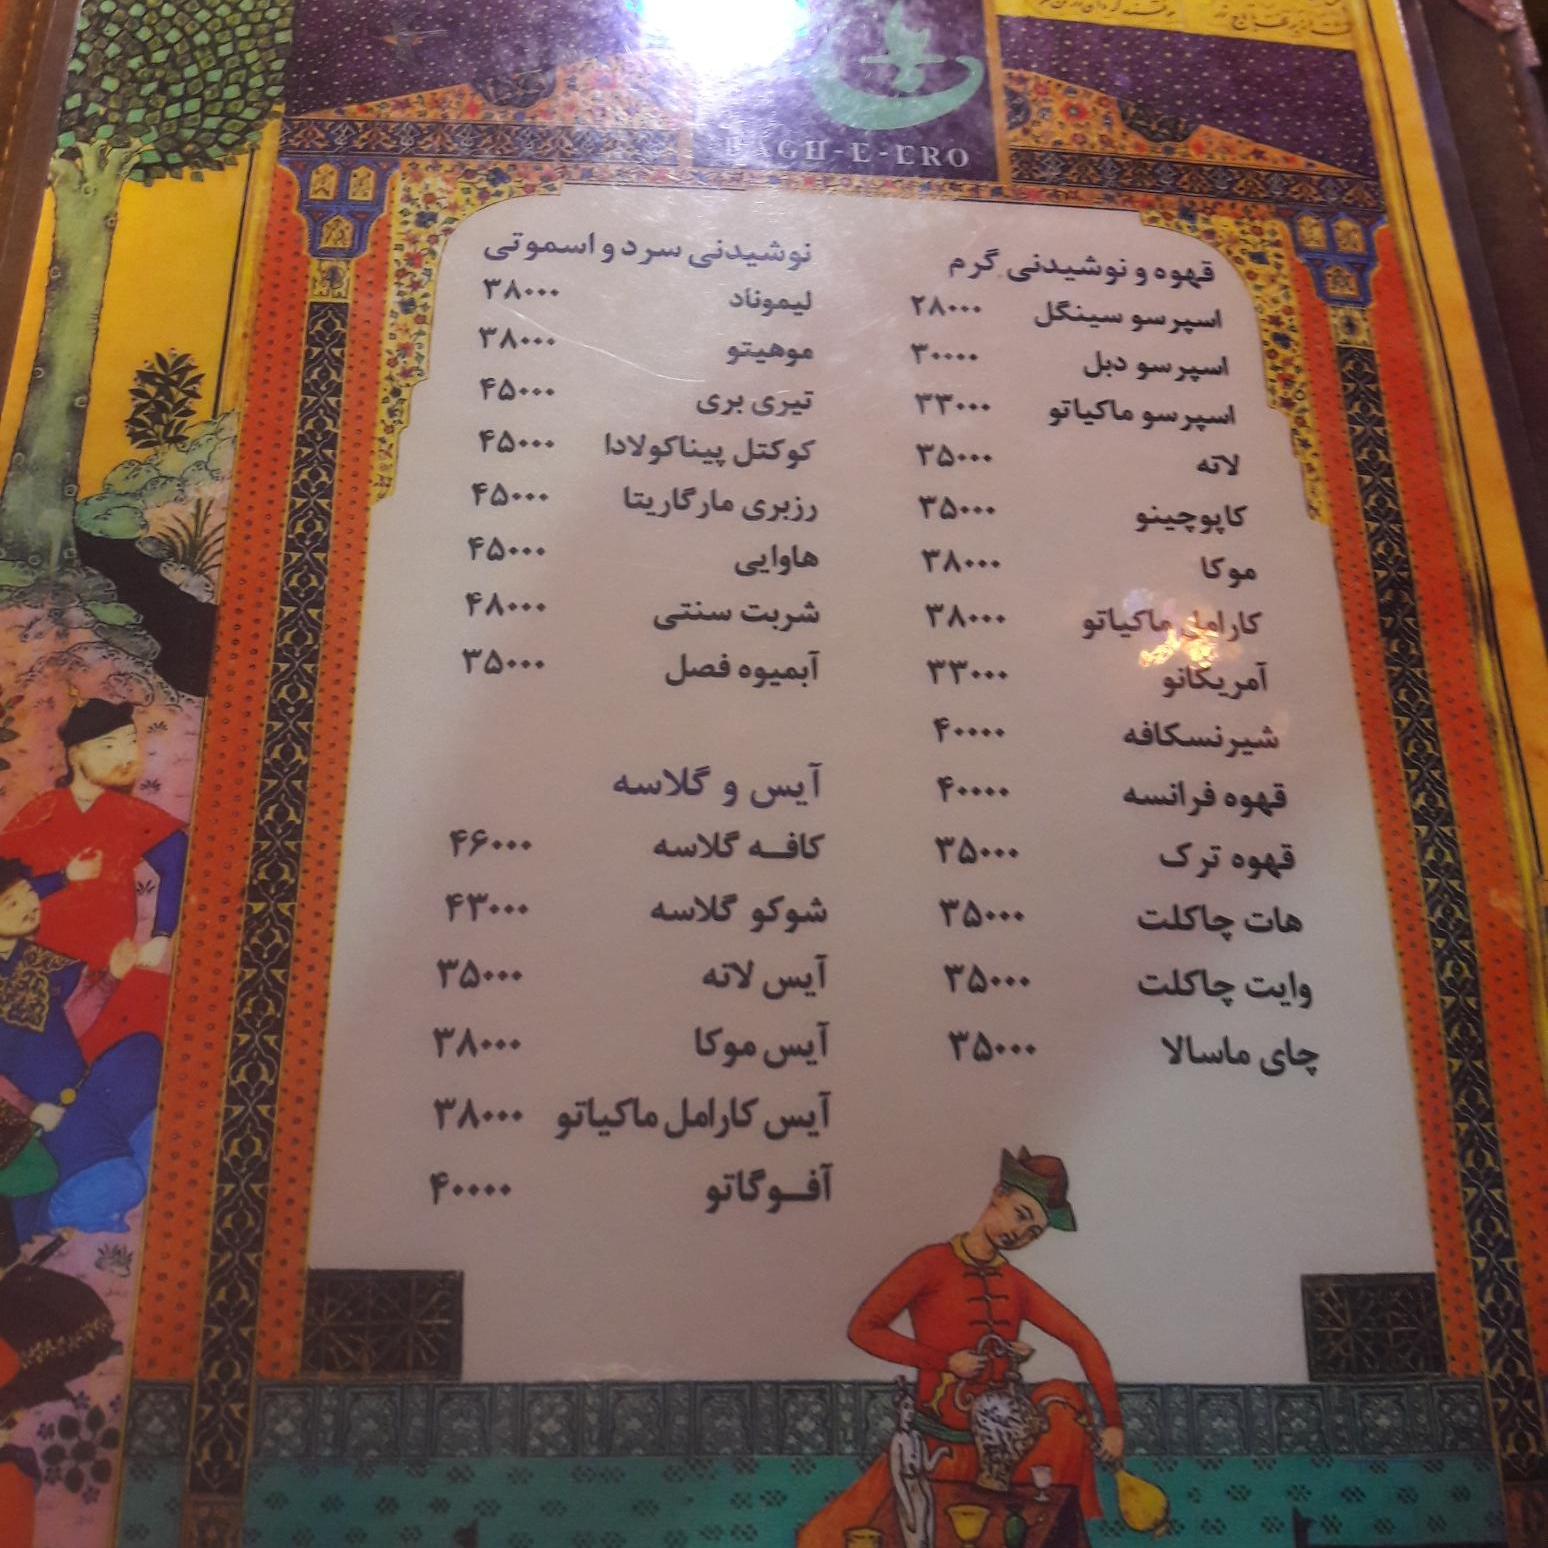 قهوه و نوشیدنی گرم
اسپرسو سینگل ۲۸۰۰۰
اسپرسو دبل ۳۰۰۰۰
اسپرسو ماکیاتو ۳۳۰۰۰
لاته ۳۵۰۰۰
کاپوچینو ۳۵۰۰۰
موکا ۳۸۰۰۰
کارامل ماکیاتو ۳۸۰۰۰
آمریکانو ۳۳۰۰۰
شیرنسکافه ۴۰۰۰۰
قهوه فرانسه ۴۰۰۰۰
قهوه ترک ۳۵۰۰۰
هات چاکلت ۳۵۰۰۰
وایت چاکلت ۳۵۰۰۰
چای ماسالا ۳۵۰۰۰
نوشیدنی سرد و اسموتی
لیموناد ۳۸۰۰۰
موهیتو ۳۸۰۰۰
تیری بری ۴۵۰۰۰
کوکتل پیناکولادا ۴۵۰۰۰
رزبری مارگاریتا ۴۵۰۰۰
هاوایی ۴۵۰۰۰
شربت سنتی ۴۸۰۰۰
آبمیوه فصل ۳۵۰۰۰
آیس و گلاسه
کافه گلاسه ۴۶۰۰۰
شوکو گلاسه ۴۳۰۰۰
آیس لاته ۳۵۰۰۰
آیس موکا ۳۸۰۰۰
آیس کارامل ماکیاتو ۳۸۰۰۰
آفوگاتو ۴۰۰۰۰